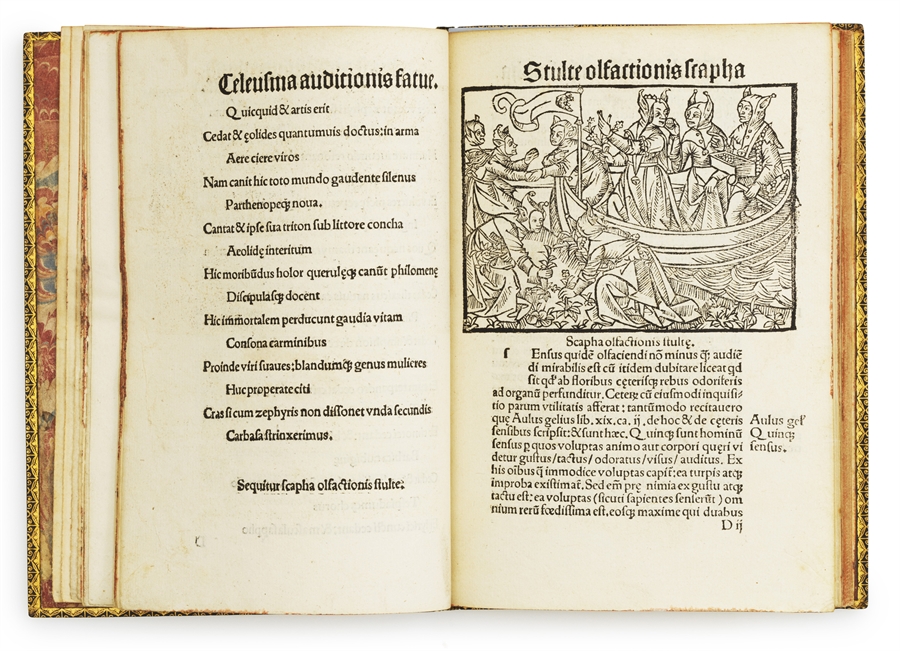 Celeusma auditionis fatue.
Quicquid & artis erit
Cedat & ęolides quantumuis doctus: in arma
Aere ciere viros
Nam canit hic toto mundo gaudente silenus
Parthenopeq; noua.
Cantat & ipse sua triton sub littore concha
Aeolidę interitum
Hic moribūdus holor querulęq; canūt philomenę
Discipulasq; docent
Hic immortalem perducunt gaudia vitam
Consona carminibus
Proinde viri suaues: blandumq; genus mulieres
Huc properate citi
Cras si cum zephyris non dissonet vnda secundis
Carbasa strinxerimus.
Sequitur scapha olfactionis stulte.
Stulte olfactionis scapha
Scapha olfactionis stultę.
Ensus quidē olfaciendi nō minus q̄; audiē
di mirabilis est cū itidem dubitare liceat qd
sit qd' ab floribus cęterisq; rebus odoriferis
ad organū perfunditur. Ceterę cū eiusmodi inquisi⸗
tio parum vtilitatis afferat: tantūmodo recitauero
quę Aulus gelius lib. xix. ca. ij. de hoc & de cęteris
sensibus scripsit: & sunt hæc. Quinq; sunt hominū
sensus p quos voluptas animo aut corpori quęri vi
detur gustus/ tactus/ odoratus/ visus/ auditus. Ex
his oībus q̄ immodice voluptas capit̄: ea turpis atq;
improba existimat̄. Sed em̄ prę nimia ex gustu atq;
tactu est: ea voluptas (sicuti sapientes senserūt) om
nium rerū fœdissima est, eosq; maxime qui duabus
D ij
Aulus gel'
Quinq;
sensus.